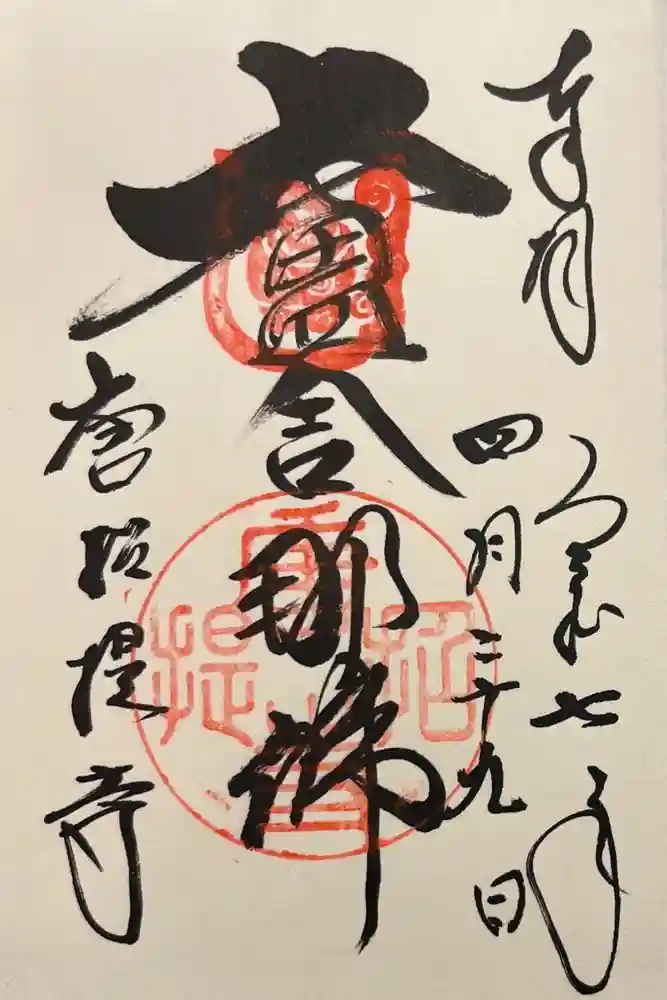 奉拝
令和七年
四月二十九日
盧舎那佛
唐招提寺